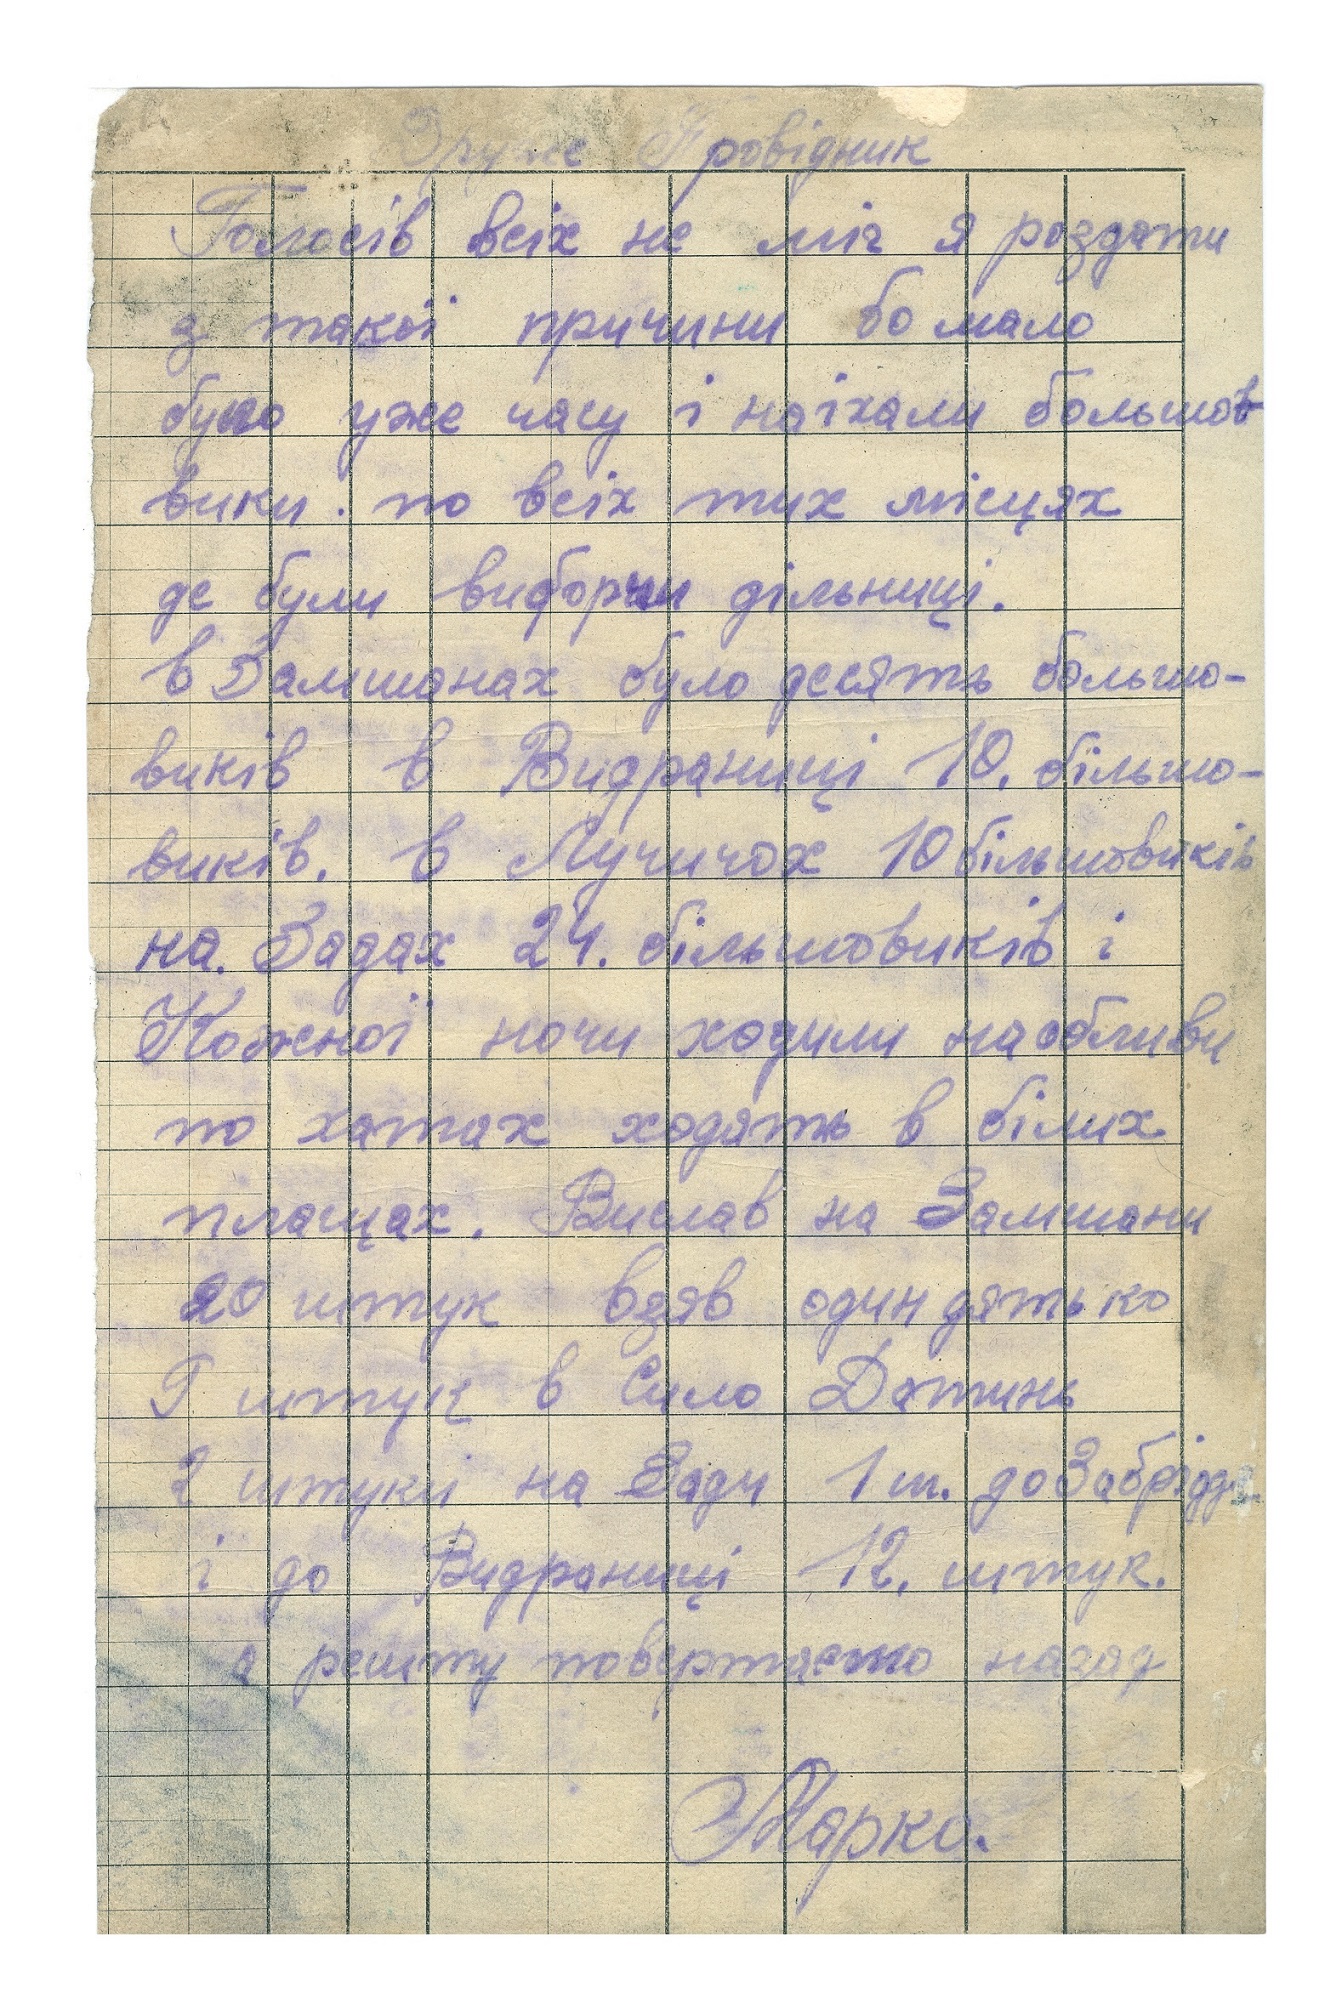 Друже Провідник
Голосів всіх не міг я роздати
з такої причини бо мало
було уже часу і наїхали большов
вики. по всіх тих місцях
де були виборчи дільниці.
в Замшанах було десять большо-
виків в Видраниці 10. більшо-
виків. в Лучичох 10 більшовиків
на. Задах 24. більшовиків і
Кожної ночи ходили насобливи
по хатах ходять в білих
плащах. Вислав на Замшани
20 штук взяв один дятько
штук в Сило Датинь
2 штуки на Зади 1 ш. до Забріддя
і до Видраниці 12. штук.
а решту повертаємо назад
Марко.